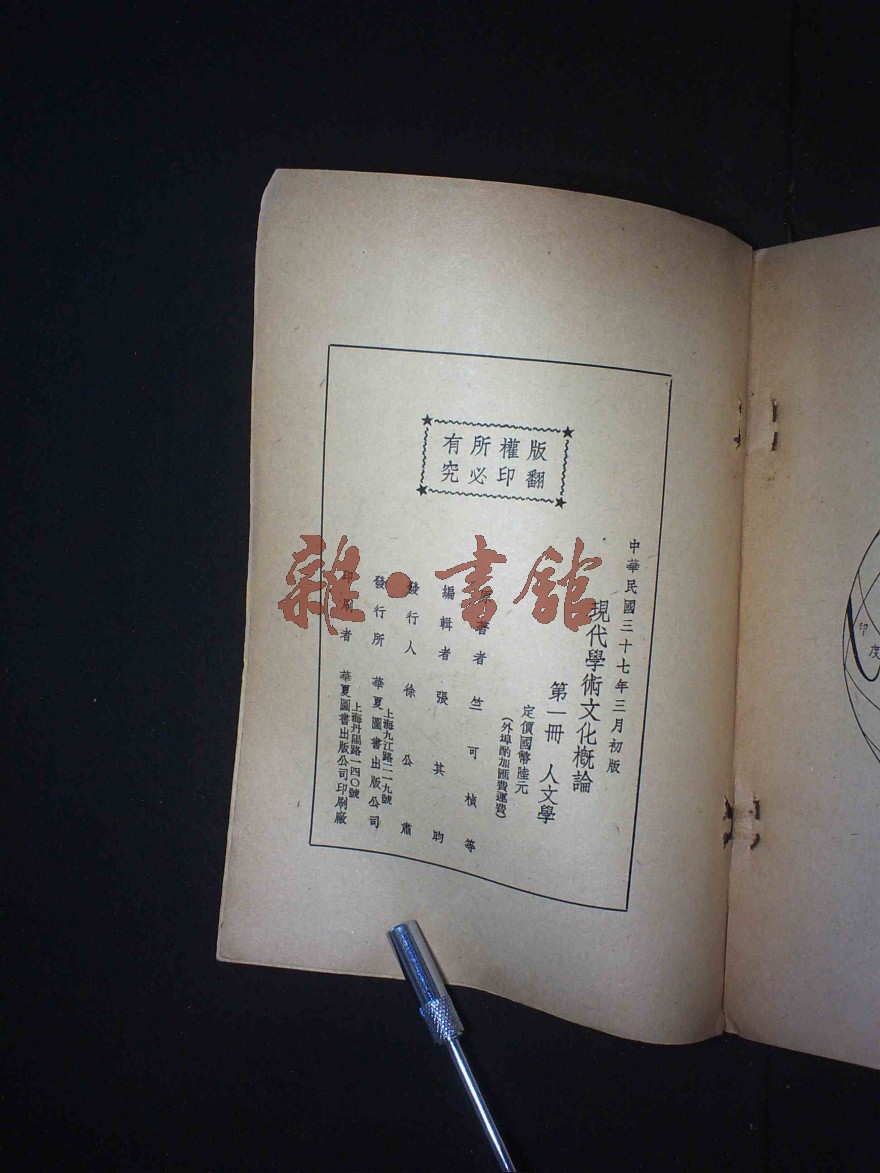 版權所有
翻印必究
中華民國三十七年三月初版
現代學術文化概論
第一冊 人文學
定價國幣陸元
(外埠酌加匯費運費)
原著者 竺可楨等
編輯者 張其昀
發行人 徐公肅
上海九江路二一九號
發行所 華夏圖書出版公司
上海丹陽路一四〇號
印刷者 華夏圖書出版公司印刷廠
雜·書館
印度